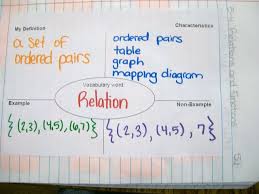 My Definition
a set of
ordered pairs
Characteristics
ordered pairs
table
graph
mapping diagram
Vocabulary word
Relation
Example
{(2,3), (4,5), (6,7)}
Non-Example
{(2,3), (4,5), 7}